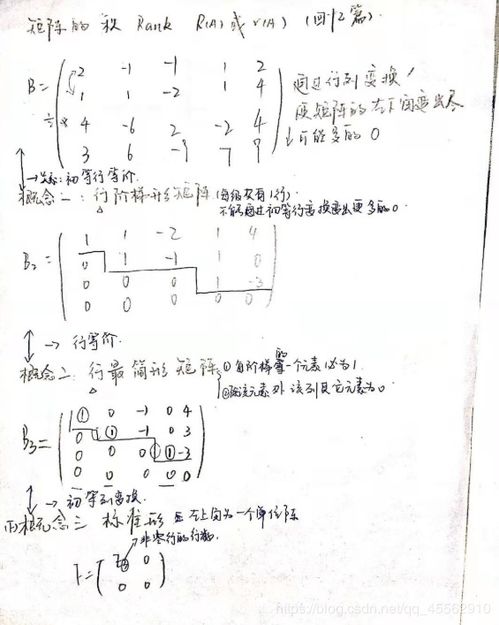 矩阵的秩 Rank R(A)或r(A) (同12篇).
B= ( 2 -1 -1 1 2
1 1 -2 1 4
÷2 4 -6 2 -2 4
3 6 -9 7 9 )
通过行列变换!
使矩阵的左下角变出尽
可能多的 0
→实际:初等行等价.
概念一:行阶梯形矩阵(每级仅有1行)
不能通过初等行变换变出更多的0.
B₂= ( 1 1 -2 1 4
0 1 -1 1 0
0 0 0 1 -3
0 0 0 0 0 )
→ 行等价.
概念二:行最简形矩阵 ①每阶梯的第一个元素必为1.
②除该元素外 该列其它元素为0.
B₃= ( 1 0 -1 0 4
0 1 -1 0 3
0 0 0 1 -3
0 0 0 0 0 )
→ 初等列变换.
概念三 标准形 左上角为一个单位阵
非零行的行数.
F= ( Ir 0
0 0 )
https://blog.csdn.net/qq_45562910